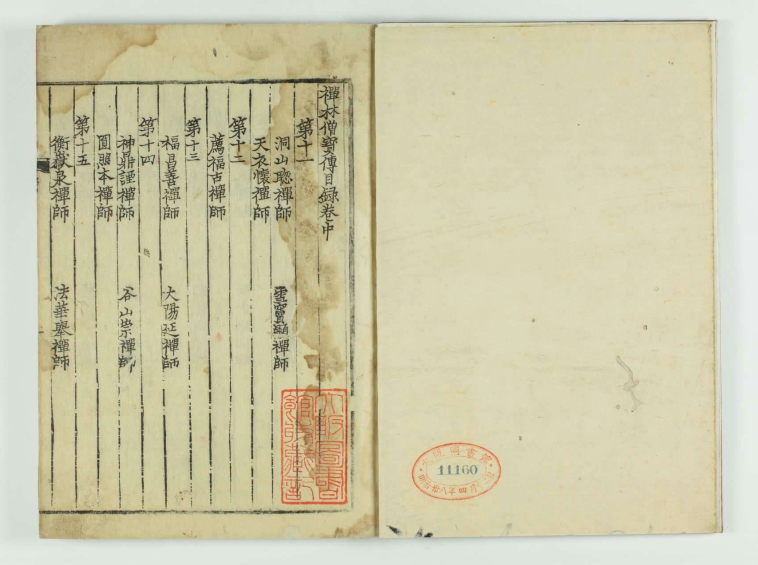 禪林僧寶傳目錄卷中
第十一
洞山聰禪師 雪竇顯禪師
天衣懷禪師
第十二
薦福古禪師
第十三
福昌善禪師 大陽延禪師
第十四
神鼎諲禪師 谷山崇禪師
圓照本禪師
第十五
衡嶽泉禪師 法華舉禪師
11160